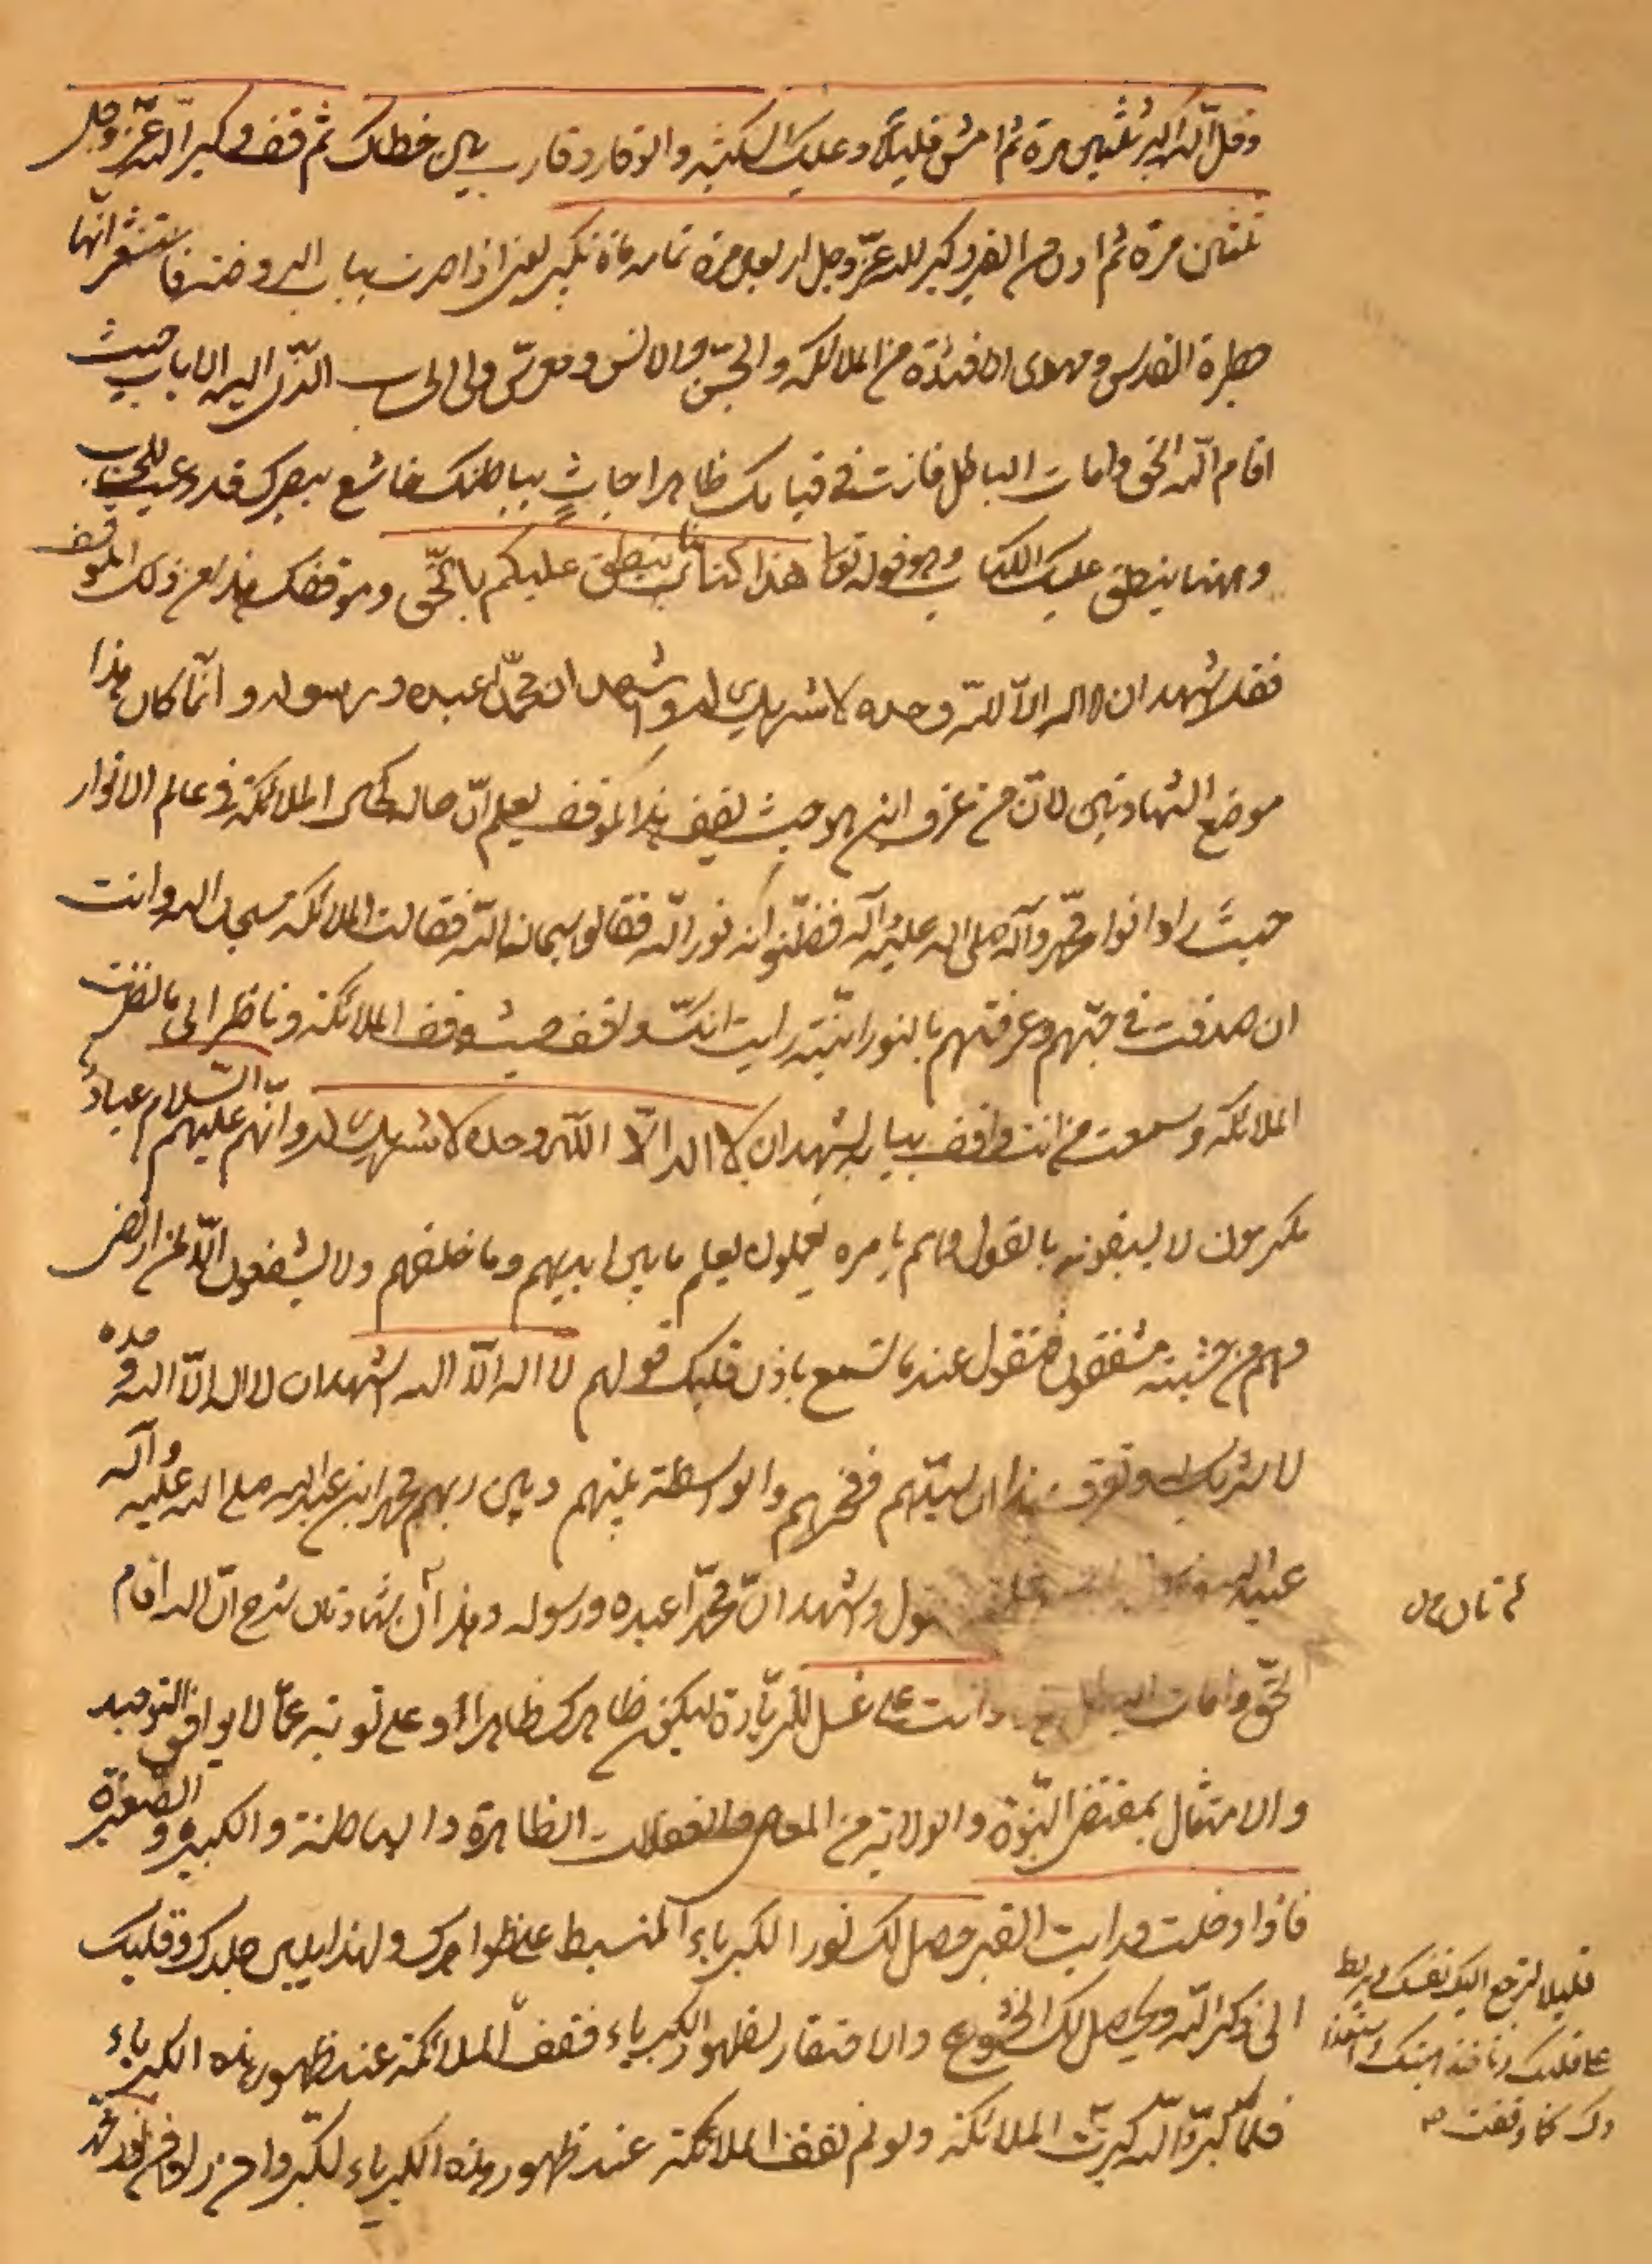 وقل الله اكبر ثلثين مرة ثم امش قليلا وعليك السكينة والوقار وقارب بين خطاك ثم قف وكبر الله عز وجل
ثلثين مرة ثم ادن من القبر وكبر لله عز وجل اربعين مرة تمام مائة تكبير يعني اذا صرت بباب الروضة فاستشعر انها
حظيرة القدس ومهوى الافئدة من الملائكة والجن والانس اليه الاياب حيث
اقام الله الحق وامات الباطل فانت في قيامك ظاهرا جاث بباطنك خاشع ببصرك قد دعيت للحساب
وههنا ينطق عليك الكتاب وهو قوله تعا هذا كتابنا ينطق عليكم بالحق وموقفك هذا من ذلك الموقف
فقل اشهد ان لا اله الا الله وحده لا شريك له واشهد ان محمدا عبده ورسوله وانما كان هذا
موضع الشهادتين لان من عرف اين هو حيث يقف هذا الموقف يعلم ان حاله كحال الملائكة في عالم الانوار
حيث راوا انوار محمد وآله صلى الله عليه وآله فظنوا انه نور الله فقالوا سبحان الله فقالت الملائكة سبحان الله وانت
ان صدقت في حبهم وعرفتهم بالنورانية رايت انك واقف حيث وقف الملائكة وناظر الى ما نظرت
الملائكة وسمعت من انت واقف ببابه يشهد ان لا اله الا الله وحده لا شريك له وانهم عليهم السلام عباد
مكرمون لا يسبقونه بالقول وهم بامره يعملون يعلم ما بين ايديهم وما خلفهم ولا يشفعون الا لمن ارتضى
وهم من خشيته مشفقون فتقول عند ما تسمع باذن قلبك قولهم لا اله الا الله اشهد ان لا اله الا الله وحده
لا شريك له وتعرف بذا ان سيدهم وفخرهم والواسطة بينهم وبين ربهم محمد ابن عبد الله صلى الله عليه وآله
عبد الله واشهد ان محمدا عبده ورسوله وهذا ان شهادتان شرح ان الله اقام
الحق وامات الباطل وانت على غسل للزيارة ليكون ظاهرك طاهرا وعلى توبة عما لا يوافق التوحيد
والامتثال بمقتضى النبوة والولاية من المعاصي والغفلات الظاهرة والباطنة والكبيرة والصغيرة
فاذا دخلت ورايت القبر حصل لك نور الكبرياء المنبسط على ظواهرك ولهذا يلين جلدك وقلبك
الى ذكر الله ويحصل لك الخشوع والافتقار لظهور الكبرياء فقف الملائكة عند ظهور هذه الكبرياء
فلما كبروا الله كبرت الملائكة ولو لم تقف الملائكة عند ظهور هذه الكبرياء لكبروا
قليلا لترجع اليك نفسك ويربط
على قلبك
كما وقفت